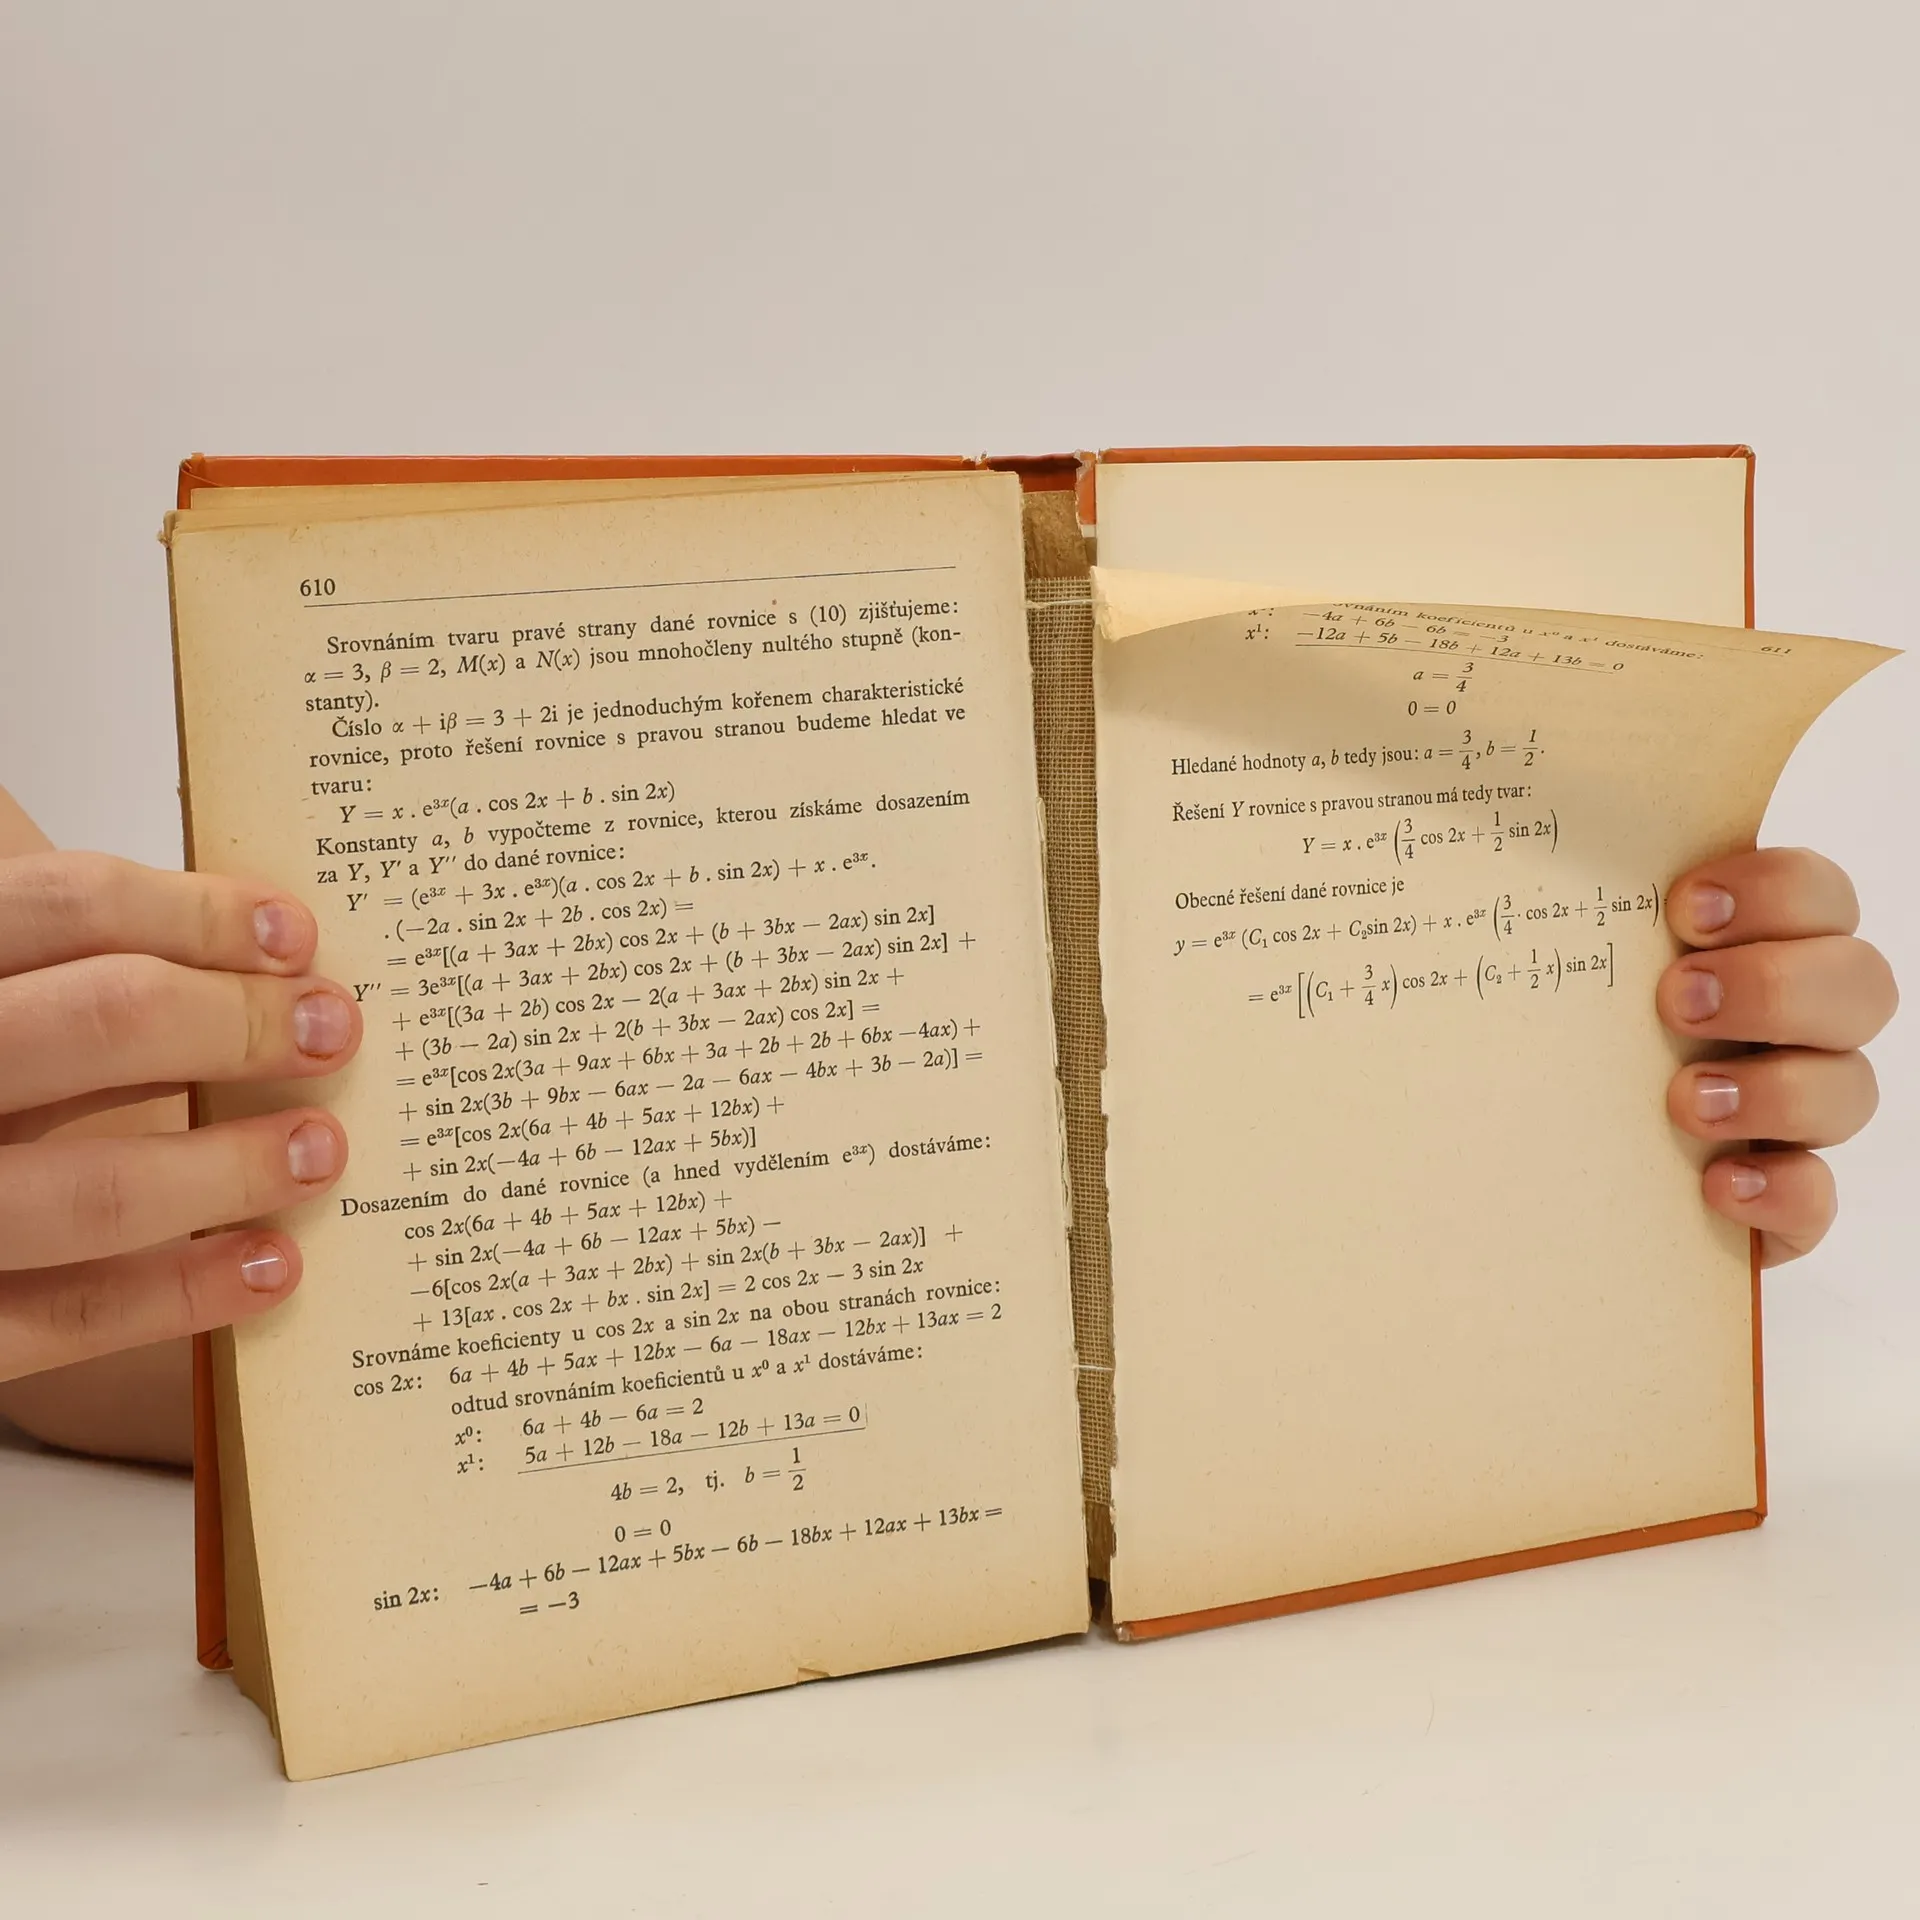 610
Srovnáním tvaru pravé strany dané rovnice s (10) zjišťujeme:
α = 3, β = 2, M(x) a N(x) jsou mnohočleny nultého stupně (kon-
stanty).
Číslo α + iβ = 3 + 2i je jednoduchým kořenem charakteristické
rovnice, proto řešení rovnice s pravou stranou budeme hledat ve
tvaru:
Y = x . e³ˣ(a . cos 2x + b . sin 2x)
Konstanty a, b vypočteme z rovnice, kterou získáme dosazením
za Y, Y′ a Y′′ do dané rovnice:
Y′ = (e³ˣ + 3x . e³ˣ)(a . cos 2x + b . sin 2x) + x . e³ˣ.
. (−2a . sin 2x + 2b . cos 2x) =
= e³ˣ[(a + 3ax + 2bx) cos 2x + (b + 3bx − 2ax) sin 2x]
Y′′ = 3e³ˣ[(a + 3ax + 2bx) cos 2x + (b + 3bx − 2ax) sin 2x] +
+ e³ˣ[(3a + 2b) cos 2x − 2(a + 3ax + 2bx) sin 2x +
+ (3b − 2a) sin 2x + 2(b + 3bx − 2ax) cos 2x] =
= e³ˣ[cos 2x(3a + 9ax + 6bx + 3a + 2b + 2b + 6bx −4ax) +
+ sin 2x(3b + 9bx − 6ax − 2a − 6ax − 4bx + 3b − 2a)] =
= e³ˣ[cos 2x(6a + 4b + 5ax + 12bx) +
+ sin 2x(−4a + 6b − 12ax + 5bx)]
Dosazením do dané rovnice (a hned vydělením e³ˣ) dostáváme:
cos 2x(6a + 4b + 5ax + 12bx) +
+ sin 2x(−4a + 6b − 12ax + 5bx) −
−6[cos 2x(a + 3ax + 2bx) + sin 2x(b + 3bx − 2ax)] +
+ 13[ax . cos 2x + bx . sin 2x] = 2 cos 2x − 3 sin 2x
Srovnáme koeficienty u cos 2x a sin 2x na obou stranách rovnice:
cos 2x: 6a + 4b + 5ax + 12bx − 6a − 18ax − 12bx + 13ax = 2
odtud srovnáním koeficientů u x⁰ a x¹ dostáváme:
x⁰: 6a + 4b − 6a = 2
x¹: 5a + 12b − 18a − 12b + 13a = 0
4b = 2, tj. b = 1/2
0 = 0
sin 2x: −4a + 6b − 12ax + 5bx − 6b − 18bx + 12ax + 13bx =
= −3
611
koeficientů u x⁰ a x¹ dostáváme:
−4a + 6b − 6b = −3
x¹: −12a + 5b − 18b + 12a + 13b = 0
a = 3/4
0 = 0
Hledané hodnoty a, b tedy jsou: a = 3/4, b = 1/2.
Řešení Y rovnice s pravou stranou má tedy tvar:
Y = x . e³ˣ (3/4 cos 2x + 1/2 sin 2x)
Obecné řešení dané rovnice je
y = e³ˣ (C₁ cos 2x + C₂sin 2x) + x . e³ˣ (3/4 . cos 2x + 1/2 sin 2x)
= e³ˣ [(C₁ + 3/4 x) cos 2x + (C₂ + 1/2 x) sin 2x]